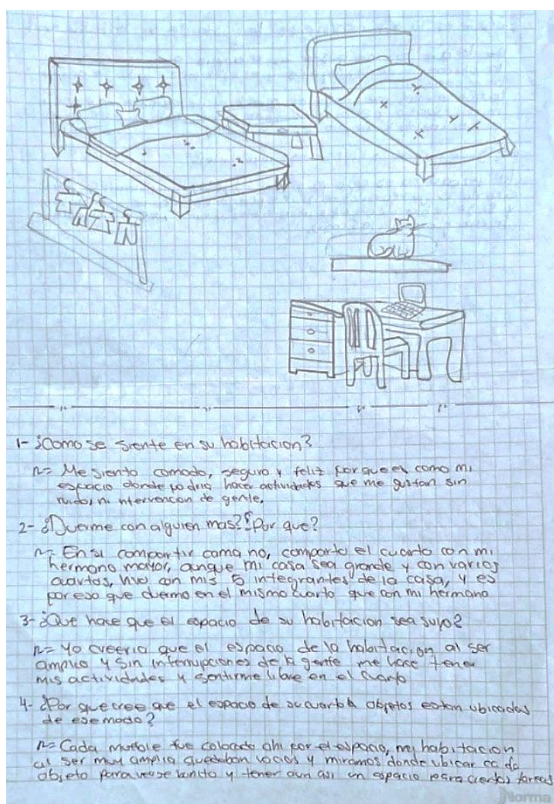 1- ¿Como se siente en su habitacion?
R= Me siento comodo, seguro y feliz porque es como mi
espacio donde podria hacer actividades que me gustan sin
ruido, ni intervencion de gente.
2- ¿Duerme con alguien mas? ¿Por que?
R= En si compartir cama no, comparto el cuarto con mi
hermano mayor, aunque mi casa sea grande y con varios
cuartos, vivo con mis 5 integrantes de la casa, y es
por eso que duermo en el mismo cuarto que con mi hermano
3- ¿Que hace que el espacio de su habitacion sea suyo?
R= Yo creeria que el espacio de la habitacion al ser
amplio y sin interrupciones de la gente me hace tener
mis actividades y sentirme libre en el cuarto
4- ¿Por que cree que el espacio de su cuarto objetos estan ubicados
de ese modo?
R= Cada mueble fue colocado ahi por el espacio, mi habitacion
al ser muy amplia quedaban vacios y miramos donde ubicar cada
objeto para verse bonito y tener aun asi un espacio para ciertas tareas
Norma